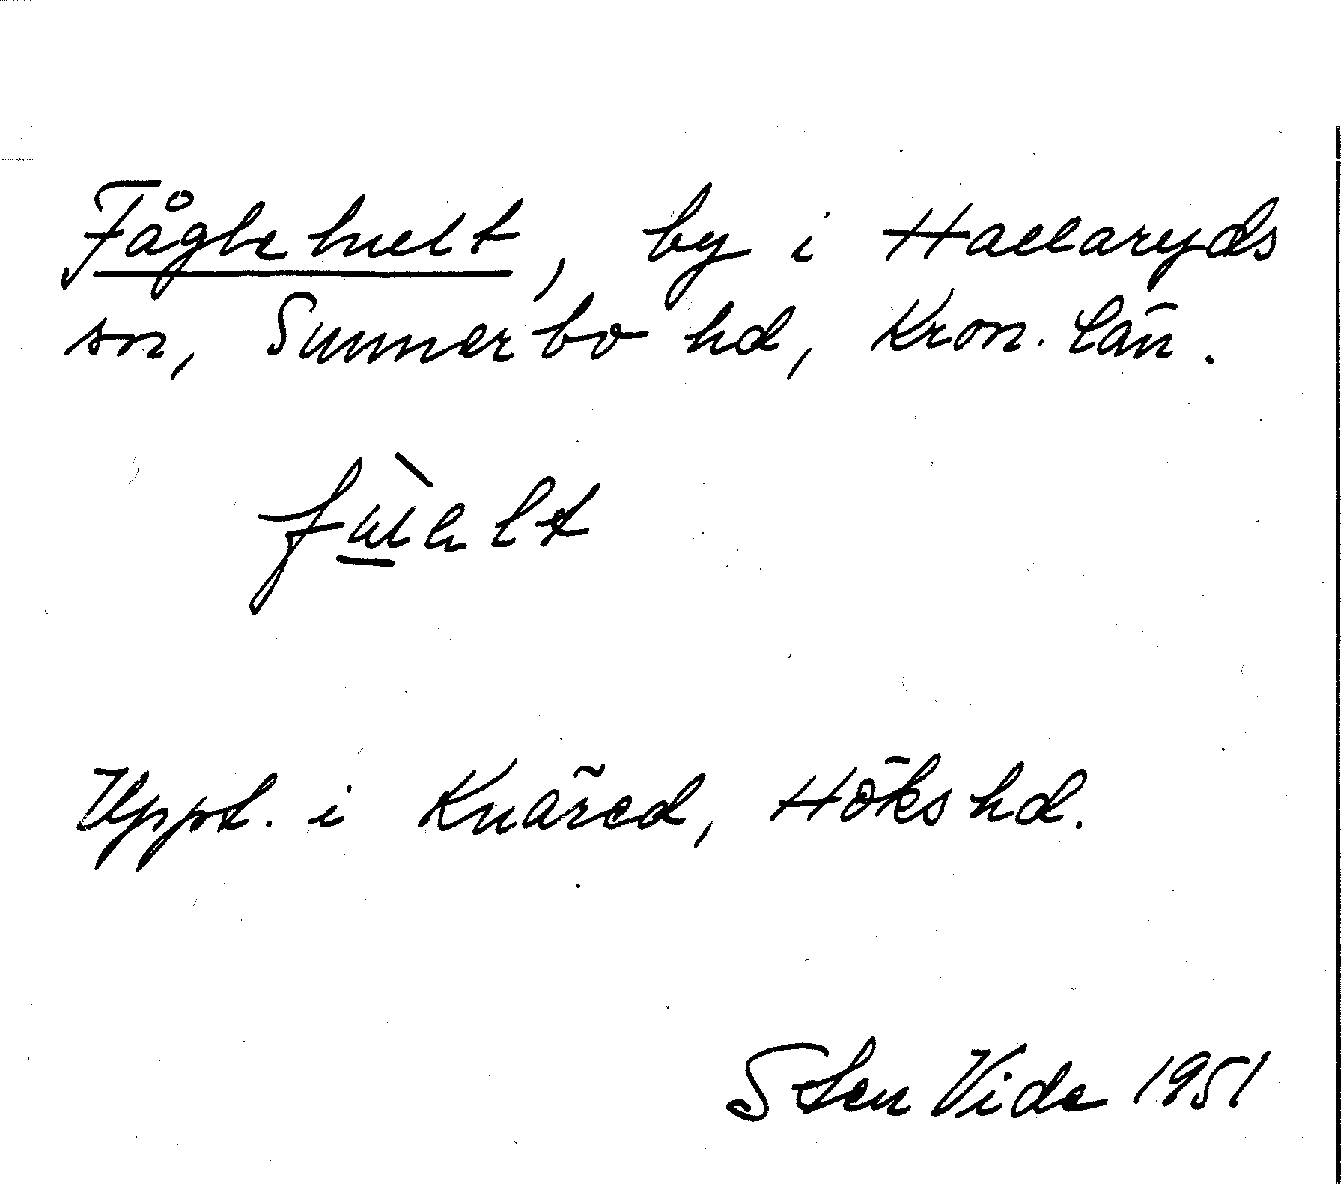 Fåglehult, by i Hallaryds
sn, Sunnerbo hd, Kron. län.
Uppt. i Knäred, Höks hd.
Sten Vide 1951